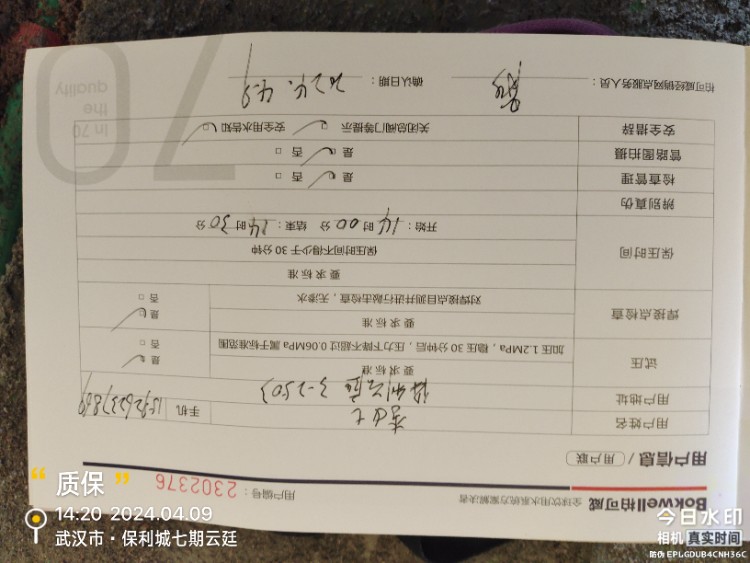 Bokwell柏可威 全球饮用水系统方案解决者 用户编号：2302376
用户信息 / 用户联
用户姓名 李女士 手机
用户地址 3-2503
试压 要求标准 是 否
加压 1.2MPa，稳压 30 分钟后，压力下降不超过 0.06MPa 属于标准范围
焊接点检查 要求标准 是 否
对焊接点目测并进行敲击检查，无渗水
保压时间 要求标准
保压时间不得少于 30 分钟
开始：14 时 00 分 结束：14 时 30 分
辨别真伪
检查管理 是 否
管路图拍摄 是 否
安全措辞 关闭总阀门等提示 安全用水告知
柏可威经销网点服务人员： 确认日期：2024.4.9
In 70
the
quality
70
“质保”
14:20 2024.04.09
武汉市·保利城七期云廷
今日水印
相机 真实时间
防伪 EPLGDUB4CNH36C